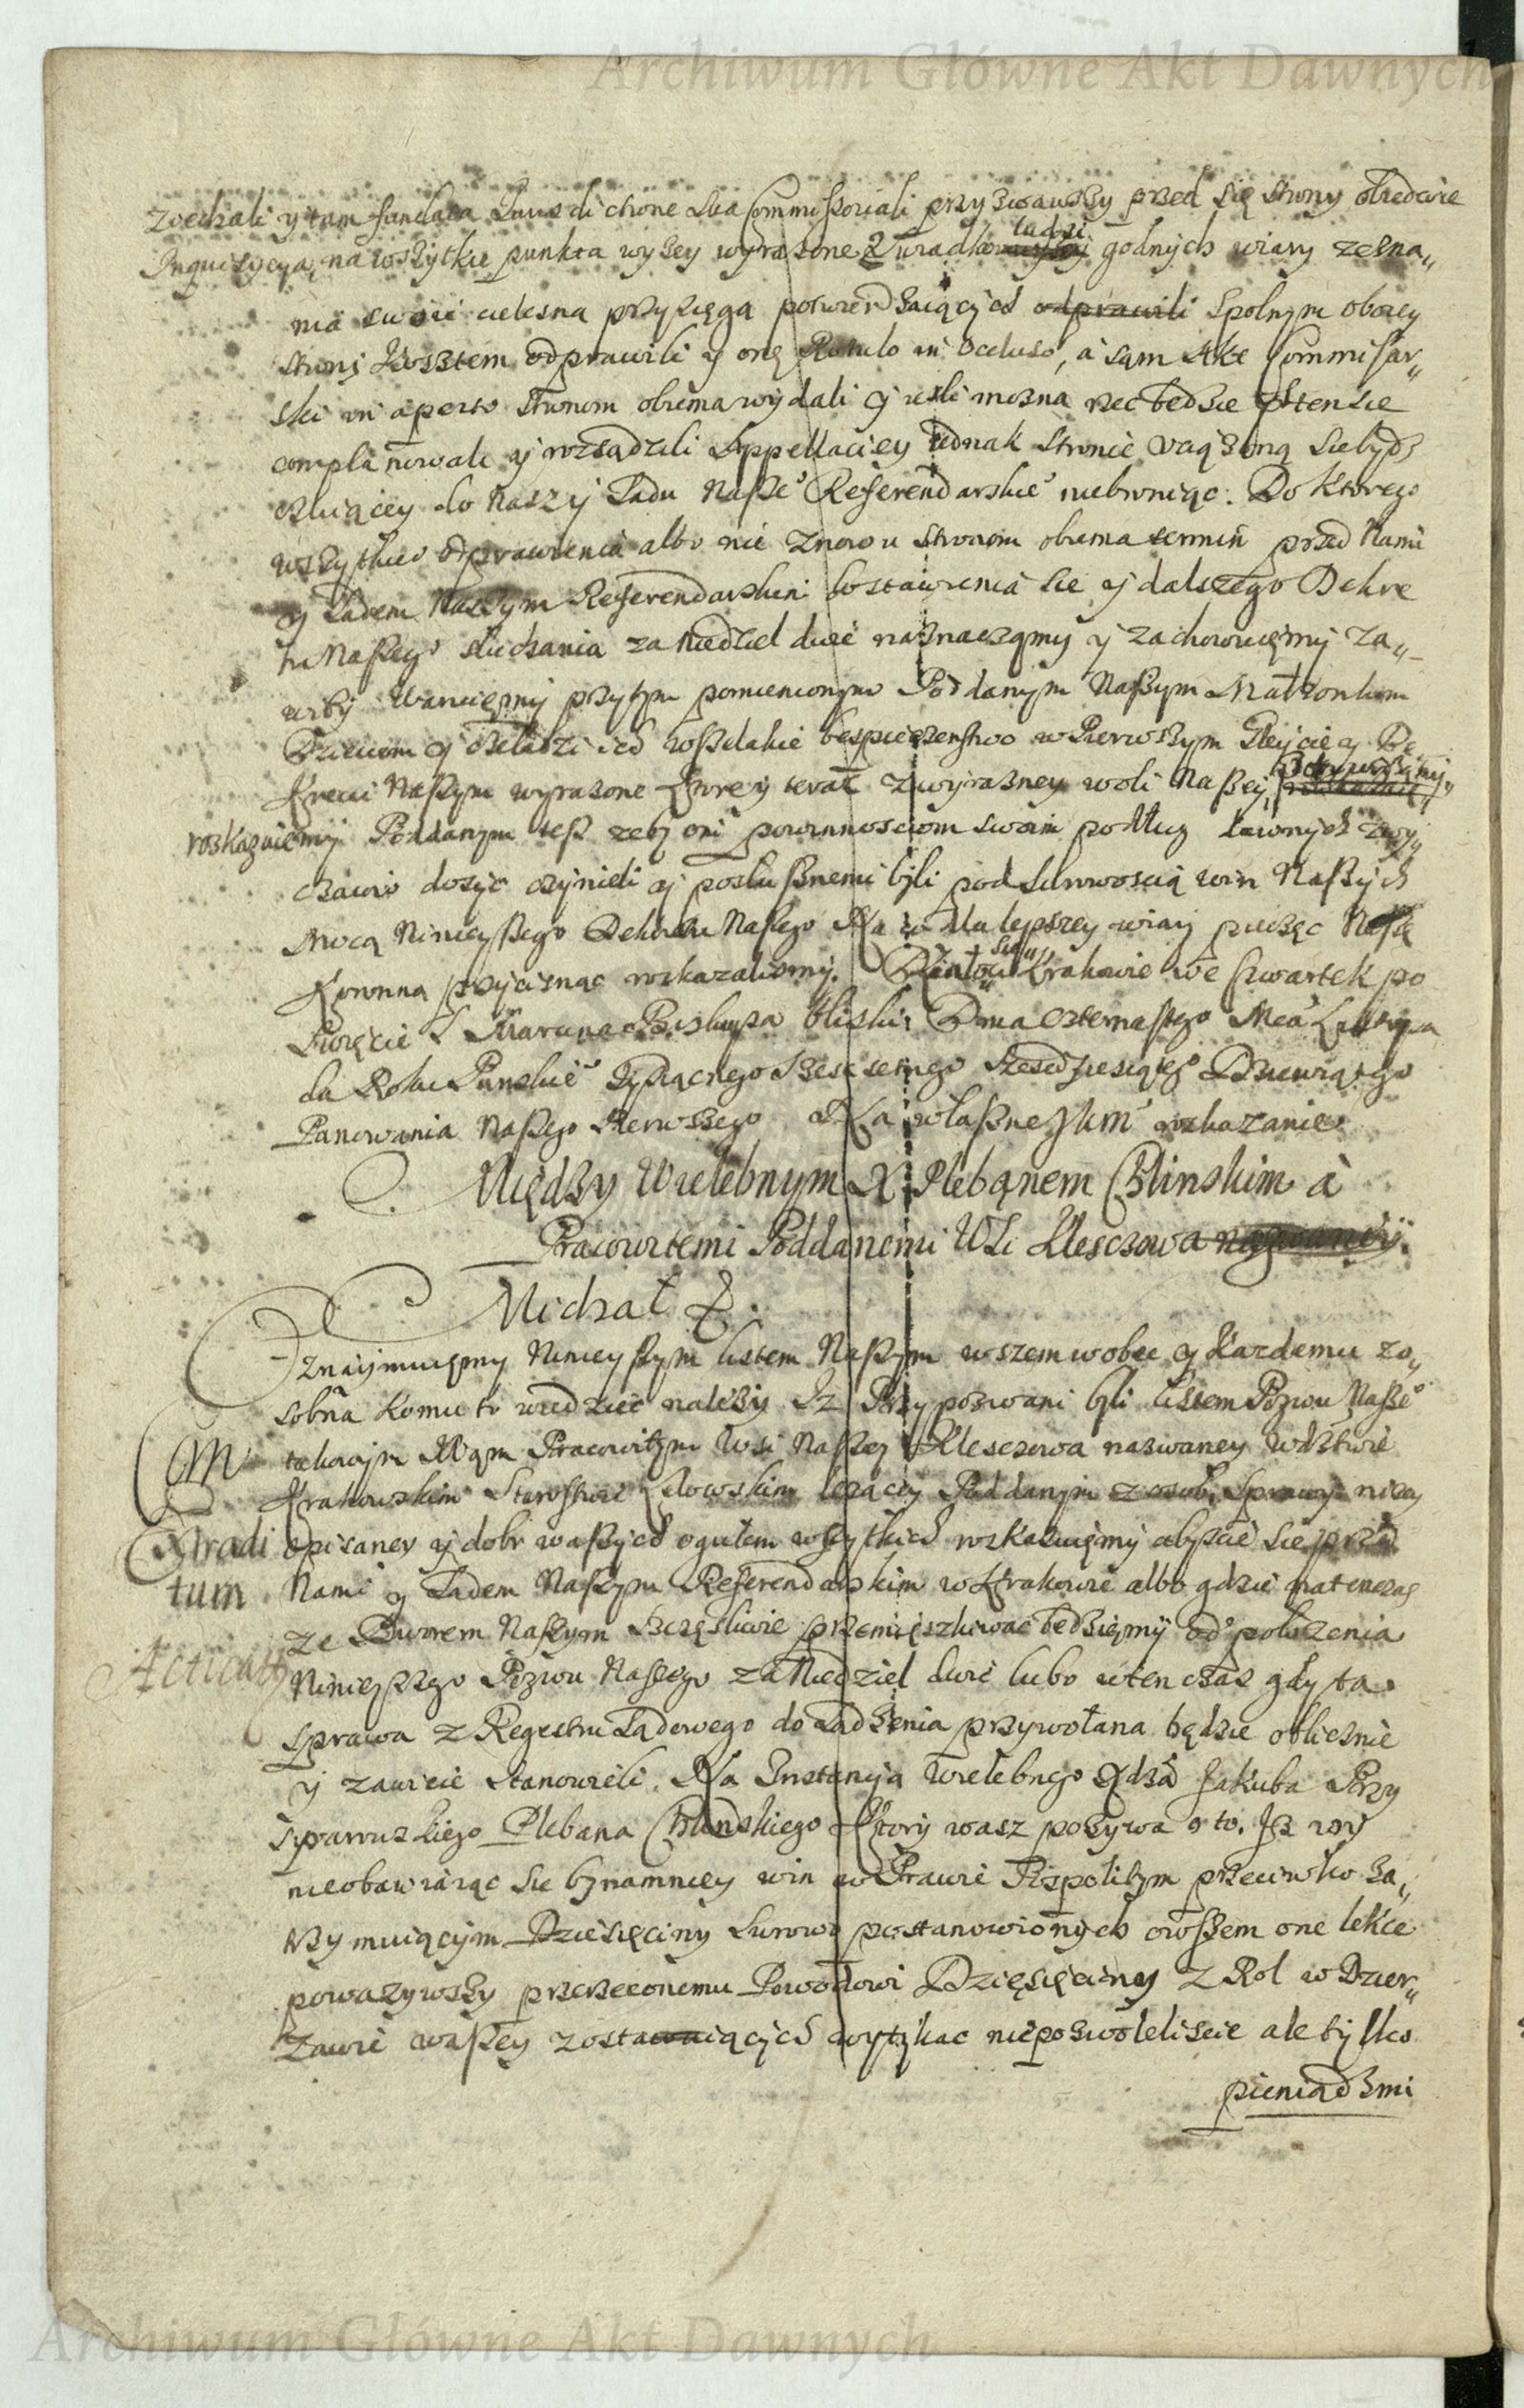 Archiwum Główne Akt Dawnych
ziechali y tam fundata Jurisdictione sua Commissoriali przyzwawszy przed się strony obiedwie
Inquizycyą na wszytkie punkta wyszey wyrazone z ludzi godnych wiary zezna„
nia swoie cielesną przysięgą potwierdzaiących odprawili spolnym oboiey
strony kosztem odprawili y onę Rotulo in occluso, a sam Akt Commissar„
ski in aperto stronom obiema wydali y iesli mozna rzec będzie Stensie
complanowali y rozsądzili Appellaciey iednak stronie
do naszy Sądu Naszeo Referendarskieo niebroniąc. Do ktorego
wszytkieo odprawienia albo nie znowu stronom obiema termin przed Nami
y Sądem Naszym Referendarskim do stawienia sie y dalszego Dekre
tu Naszego słuchania za Niedziel dwie naznaczamy y zachowuiemy Za„
Waruiemy przytym pomienionym Poddanym Naszym Małzonkom
Dzieciom y czeladzi ich wszelakie bespieczenstwo w Pierwszym Gleycie y De„
krecie Naszym wyrazone ktore y teraz z wyrazney woli Naszey
roskazuiemy Poddanym tesz zeby oni powinnosciom swoim podług dawnych zwy„
czaiow dosyc czynieli y posłusznemi byli pod surowoscią win Naszych
Mocą Ninieyszego Dekretu Naszego Na co dla lepszey wiary pieczęc Naszą
Koronną przycisnąc rozkazalismy. Dan w Krakowie we Czwartek po
Swięcie S Marcina Biskupa bliski Dnia czternastego Mca Listopa
da Roku Panskieo Tysiącnego Szescsetnego Szescdziesiątego Dziewiątego
Panowania Naszego Pierwszego Na własne JKM rozkazanie
Między Wielebnym X Plebanem Chlinskim a
Pracowitemi Poddanemi WSi Klesczowa
Michał &
Oznaymuiemy Ninieyszym listem Naszym wszem wobec y kazdemu zo„
sobna komu to wiedziec nalezy Iz Przypozwani byli listem Pozwu Naszeo
takowym Wąm Pracowitym Wsi Naszey Klesczowa nazwaney w Wdztwie
Krakowskim Starostwie Lelowskim lezącey Poddanym z osob, sprawy nizey
Extradi opisaney y dobr waszych ogułem wszytkich rozkazuiemy abyscie sie przed
tum Nami y Sądem Naszym Referendarskim w Krakowie albo gdzie natenczas
ze Dworem Naszym Szczęsliwie przemięszkiwac będziemy od połozenia
Acticatt Ninieyszego Pozwu Naszego za Niedziel dwie lubo wten czas gdy ta
sprawa z Regestru Sądowego do sądzenia przywołana będzie obliczenie
y zawicie stanowieli. Na Instancyą Wielebnego Xdza Jakuba Przy
sparuszkiego Plebana Chlinskiego Ktory wasz pozywa o to. Isz wy
nieobawiaiąc sie bynamniey win w Prawie Pospolitym przeciwko za„
trzymuiącym Dziesięciny surowo postanowionych owszem one lekce
powazywszy przerzeconemu Powodowi Dzięsięciny z Rol w Dzier„
zawie waszey zostaiących wytykac niepozwoleliscie ale tylko
pieniądzmi
Archiwum Główne Akt Dawnych